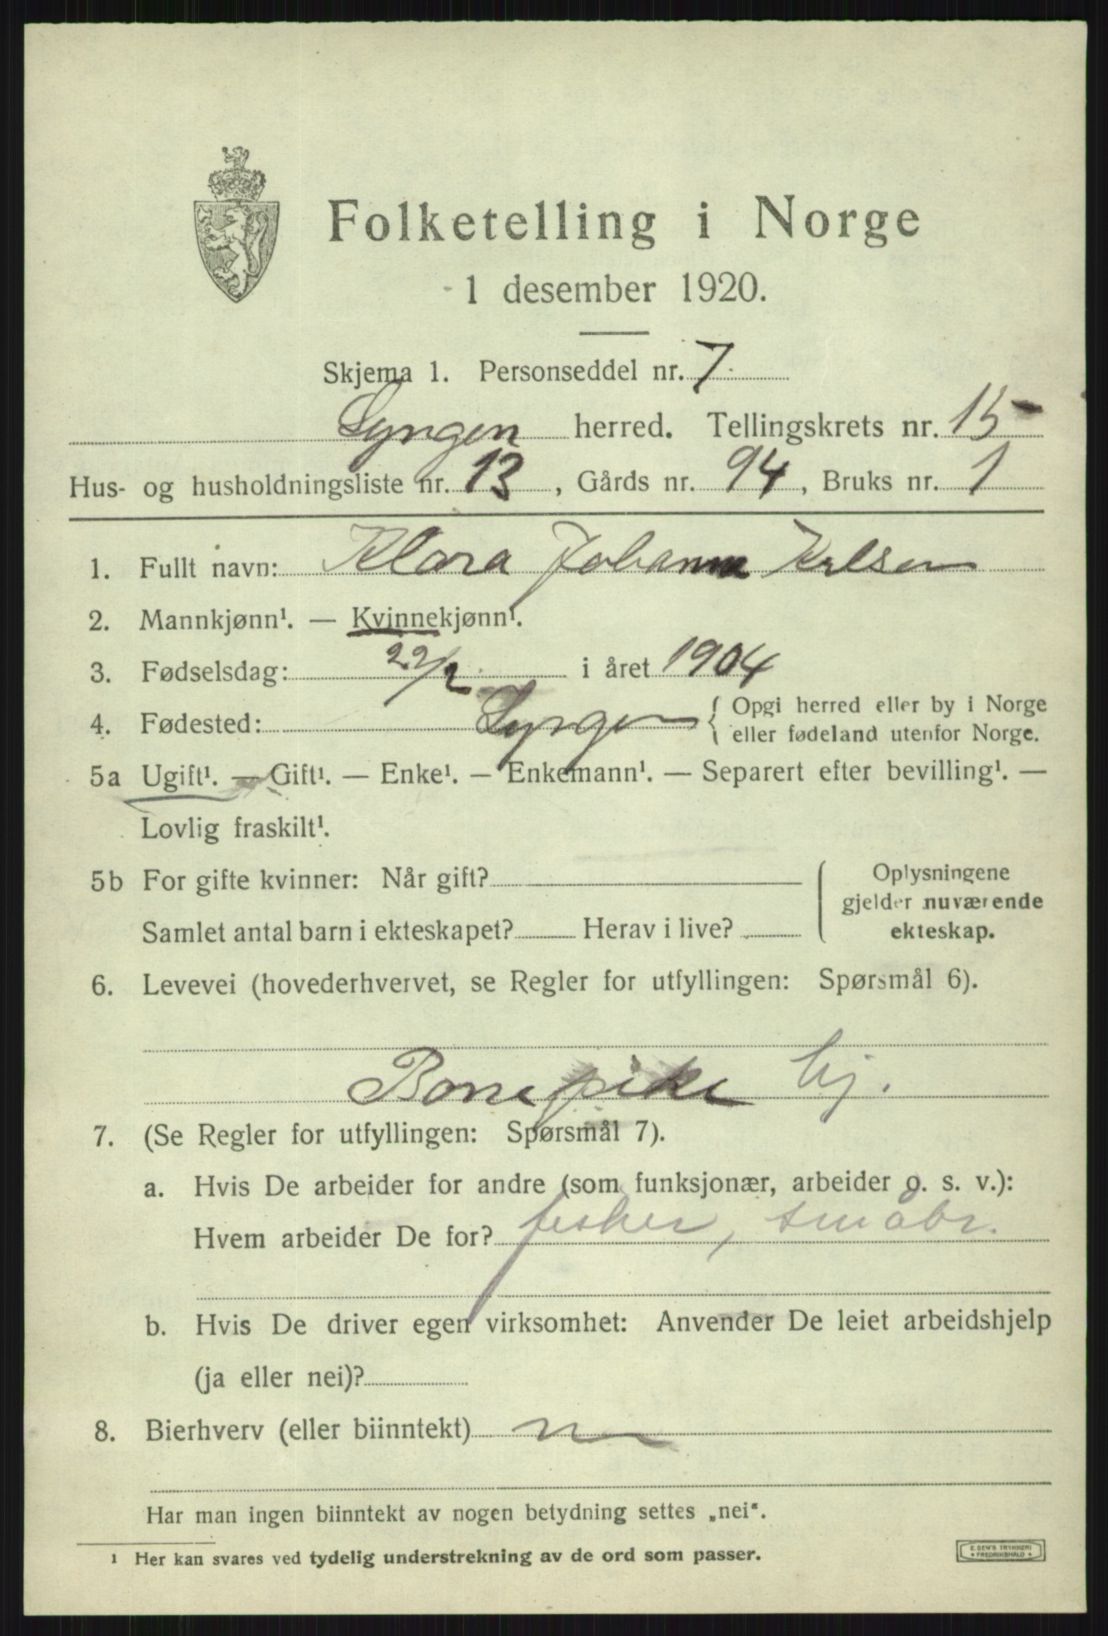 Folketelling i Norge
1 desember 1920.
Skjema 1. Personseddel nr. 7
Lyngen herred. Tellingskrets nr. 15
Hus- og husholdningsliste nr. 13, Gårds nr. 94, Bruks nr. 1
1. Fullt navn: Klara Johanna Karlsen
2. Mannkjønn¹. — Kvinnekjønn¹.
3. Fødselsdag: 22/2 i året 1904
4. Fødested: Lyngen { Opgi herred eller by i Norge
eller fødeland utenfor Norge.
5a Ugift¹. — Gift¹. — Enke¹. — Enkemann¹. — Separert efter bevilling¹. —
Lovlig fraskilt¹.
5b For gifte kvinner: Når gift?
Samlet antal barn i ekteskapet? Herav i live?
Oplysningene
gjelder nuværende
ekteskap.
6. Levevei (hovederhvervet, se Regler for utfyllingen: Spørsmål 6).
Barnepike hj.
7. (Se Regler for utfyllingen: Spørsmål 7).
a. Hvis De arbeider for andre (som funksjonær, arbeider o. s. v.):
Hvem arbeider De for? fisker, småbr.
b. Hvis De driver egen virksomhet: Anvender De leiet arbeidshjelp
(ja eller nei)?
8. Bierhverv (eller biinntekt)
Har man ingen biinntekt av nogen betydning settes „nei".
¹ Her kan svares ved tydelig understrekning av de ord som passer.
E. SEM'S TRYKKERI
FREDRIKSHALD